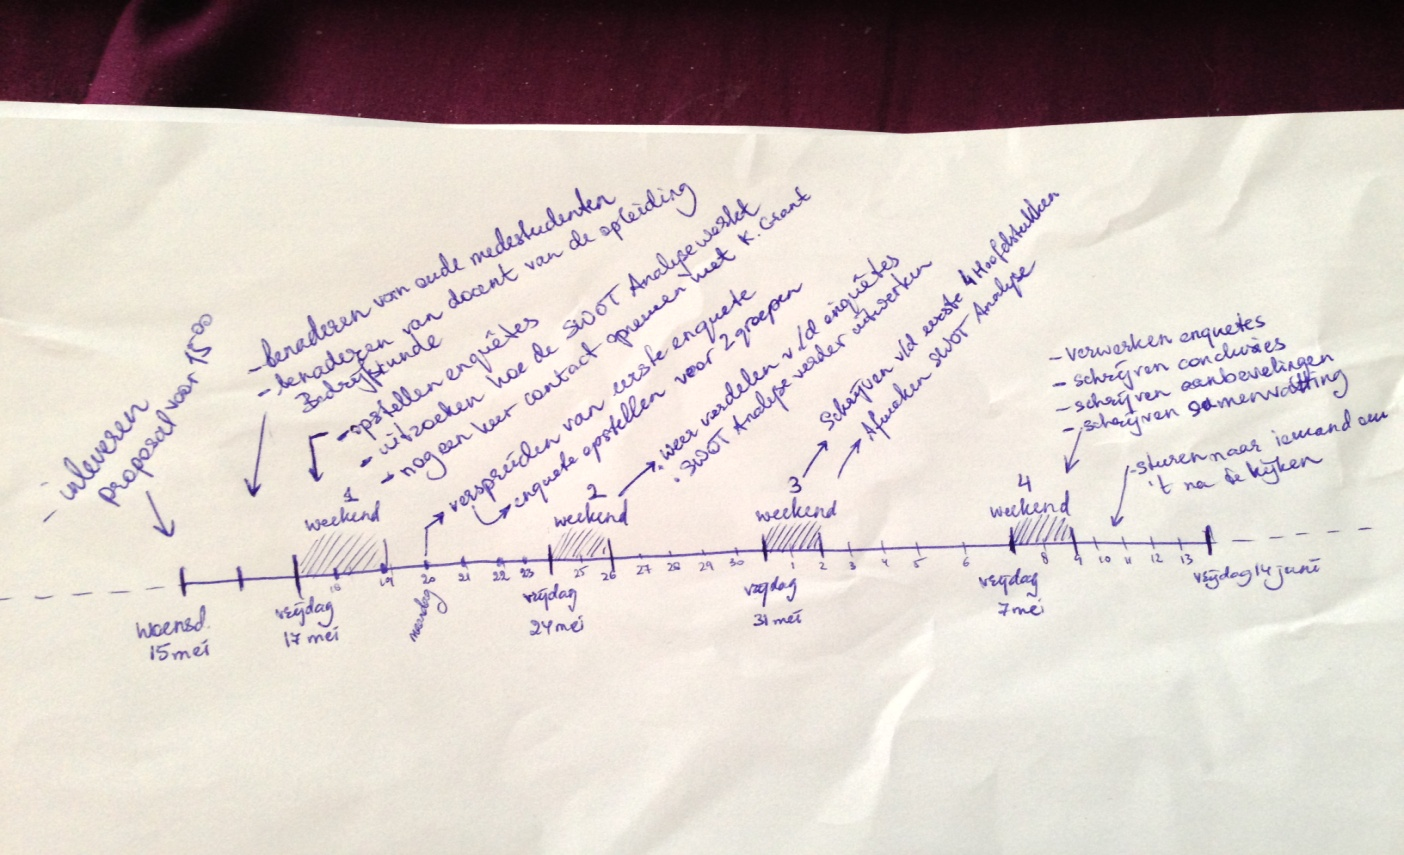 - inleveren
proposal voor 15⁰⁰
- benaderen van oude medestudenten
- benaderen van docent van de opleiding
Bedrijfskunde
- opstellen enquêtes
- uitzoeken hoe de SWOT Analyse werkt
- nog een keer contact opnemen met K. Grant
verspreiden van eerste enquete
enquete opstellen voor 2 groepen
. weer verdelen v/d enquêtes
. SWOT Analyse verder uitwerken
Schrijven v/d eerste 4 Hoofdstukken
Afmaken SWOT Analyse
- verwerken enquetes
- schrijven conclusies
- schrijven aanbevelingen
- schrijven samenvatting
- sturen naar iemand om
't na te kijken
1
weekend
2
weekend
3
weekend
4
weekend
18 19 20 21 22 23 25 26 27 28 29 30 1 2 3 4 5 6 8 9 10 11 12 13
woensd.
15 mei
vrijdag
17 mei
maandag
vrijdag
24 mei
vrijdag
31 mei
vrijdag
7 mei
vrijdag 14 juni